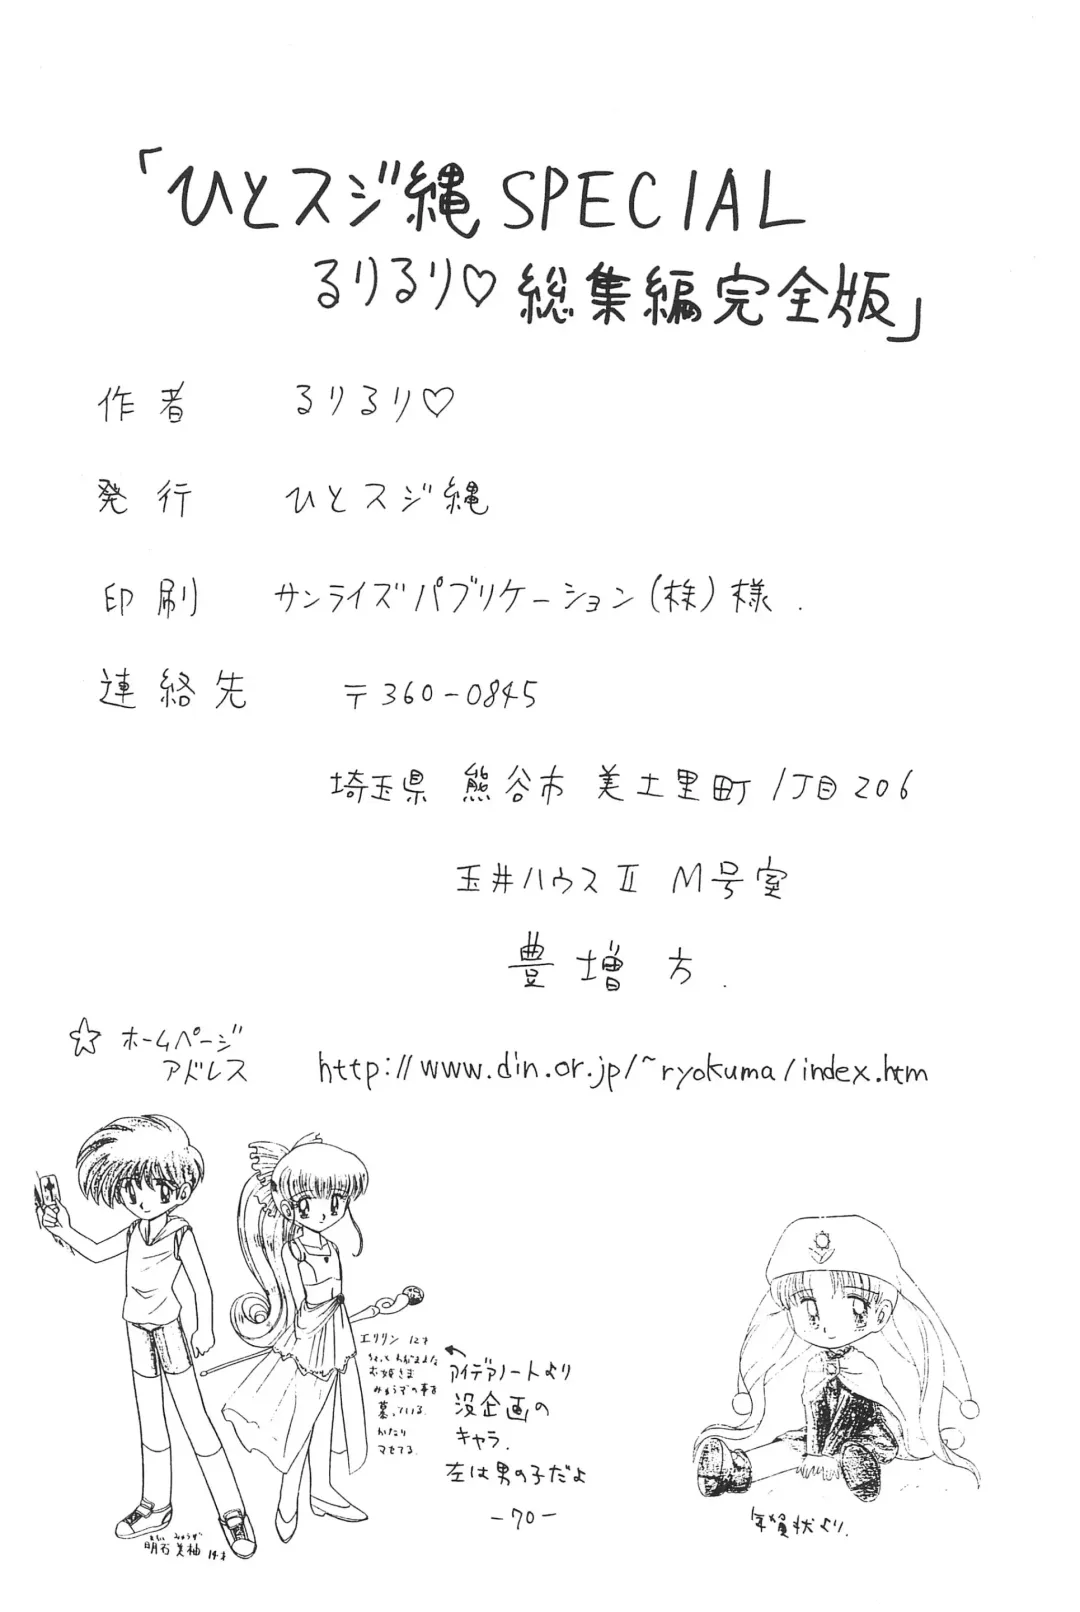 「ひとスジ縄 SPECIAL
るりるり♡ 総集編完全版」
作者 るりるり♡
発行 ひとスジ縄
印刷 サンライズパブリケーション(株)様.
連絡先 〒360-0845
埼玉県 熊谷市 美土里町 1丁目206
玉井ハウスⅡ M号室
豊増方.
☆ ホームページ
アドレス http://www.din.or.jp/~ryokuma/index.htm
エリリン 12才
ちょっとわがままな
お姫さま
みゅうずの事を
慕っている.
かなり
マセてる.
←アイデアノートより
没企画の
キャラ.
左は男の子だよ
明石美柚 14才
-70-
年賀状より.